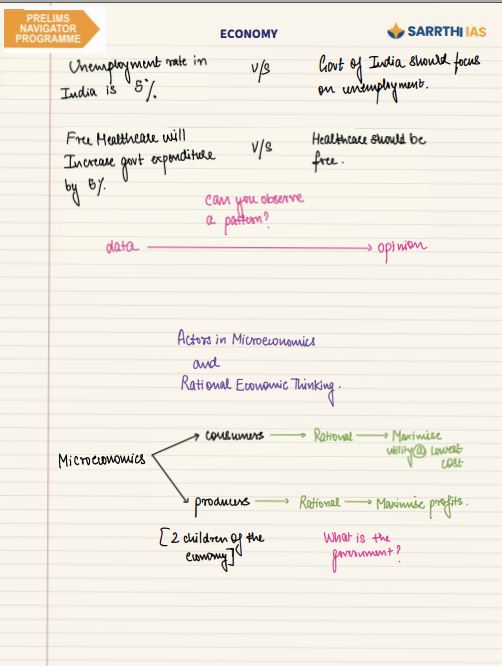 PRELIMS
NAVIGATOR
PROGRAMME
ECONOMY
SARRTHI IAS
Unemployment rate in
India is 5%.
V/S
Govt of India should focus
on unemployment.
Free Healthcare will
Increase govt expenditure
by 5%.
V/S
Healthcare should be
free.
Can you observe
a pattern?
data → opinion
Actors in Microeconomics
and
Rational Economic Thinking.
Microeconomics
consumers → Rational → Maximise
utility@ lowest
cost
producers → Rational → Maximise profits.
[2 children of the
economy]
What is the
government?